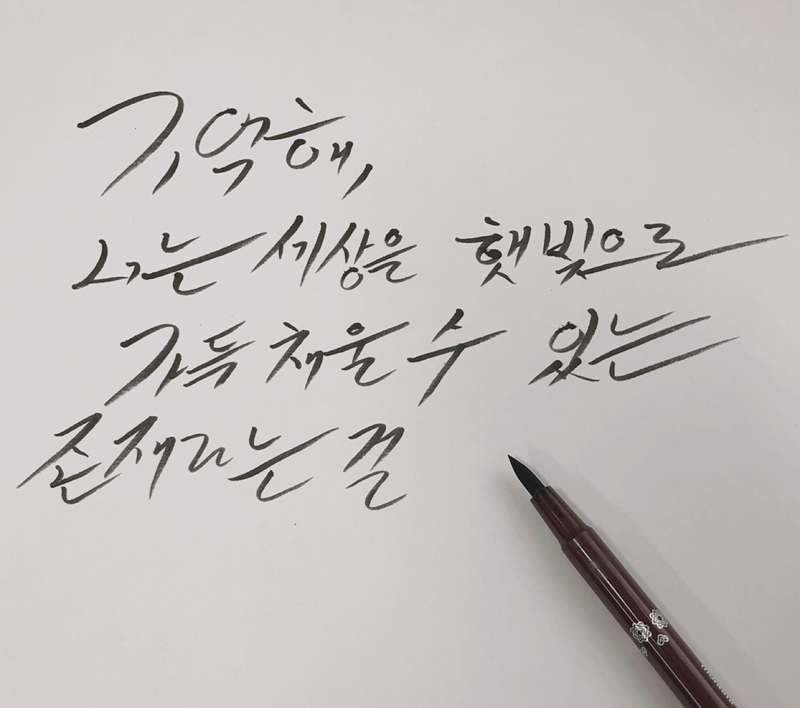 기억해,
너는 세상을 햇빛으로
가득 채울 수 있는
존재라는 걸